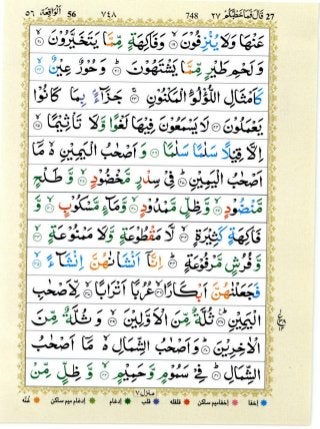 ٱلْوَاقِعَة ٥٦ 56 ٧٤٨ 748 قَالَ فَمَا خَطْبُكُمْ ٢٧ 27
عَنْهَا وَلَا يُنْزِفُوْنَ ۙ﴿۱۹﴾ وَفَاكِهَةٍ مِّمَّا يَتَخَيَّرُوْنَ ۙ﴿۲۰﴾
وَلَحْمِ طَيْرٍ مِّمَّا يَشْتَهُوْنَ ؕ﴿۲۱﴾ وَحُوْرٌ عِيْنٌ ۙ﴿۲۲﴾
كَاَمْثَالِ اللُّؤْلُؤِ الْمَكْنُوْنِ ۚ﴿۲۳﴾ جَزَآءًۢ بِمَا كَانُوْا
يَعْمَلُوْنَ ﴿۲۴﴾ لَا يَسْمَعُوْنَ فِيْهَا لَغْوًا وَّلَا تَاْثِيْمًا ۙ﴿۲۵﴾
اِلَّا قِيْلًا سَلٰمًا سَلٰمًا ﴿۲۶﴾ وَاَصْحٰبُ الْيَمِيْنِ ۙ۬ مَاۤ
اَصْحٰبُ الْيَمِيْنِ ؕ﴿۲۷﴾ فِيْ سِدْرٍ مَّخْضُوْدٍ ۙ﴿۲۸﴾ وَّ طَلْحٍ
مَّنْضُوْدٍ ۙ﴿۲۹﴾ وَّ ظِلٍّ مَّمْدُوْدٍ ۙ﴿۳۰﴾ وَّمَآءٍ مَّسْكُوْبٍ ۙ﴿۳۱﴾ وَّ
فَاكِهَةٍ كَثِيْرَةٍ ۙ﴿۳۲﴾ لَّا مَقْطُوْعَةٍ وَّلَا مَمْنُوْعَةٍ ۙ﴿۳۳﴾
وَّ فُرُشٍ مَّرْفُوْعَةٍ ؕ﴿۳۴﴾ اِنَّاۤ اَنْشَاْنٰهُنَّ اِنْشَآءً ۙ﴿۳۵﴾
فَجَعَلْنٰهُنَّ اَبْكَارًا ۙ﴿۳۶﴾ عُرُبًا اَتْرَابًا ۙ﴿۳۷﴾ لِّاَصْحٰبِ
الْيَمِيْنِ ؕ﴿۳۸﴾ ثُلَّةٌ مِّنَ الْاَوَّلِيْنَ ۙ﴿۳۹﴾ وَ ثُلَّةٌ مِّنَ
الْاٰخِرِيْنَ ؕ﴿۴۰﴾ وَاَصْحٰبُ الشِّمَالِ ۙ۬ مَاۤ اَصْحٰبُ
الشِّمَالِ ؕ﴿۴۱﴾ فِيْ سَمُوْمٍ وَّحَمِيْمٍ ۙ﴿۴۲﴾ وَّ ظِلٍّ مِّنْ
منزل ٧
اخفا اخفا میم ساکن قلقلہ قلب ادغام ادغام میم ساکن غنہ